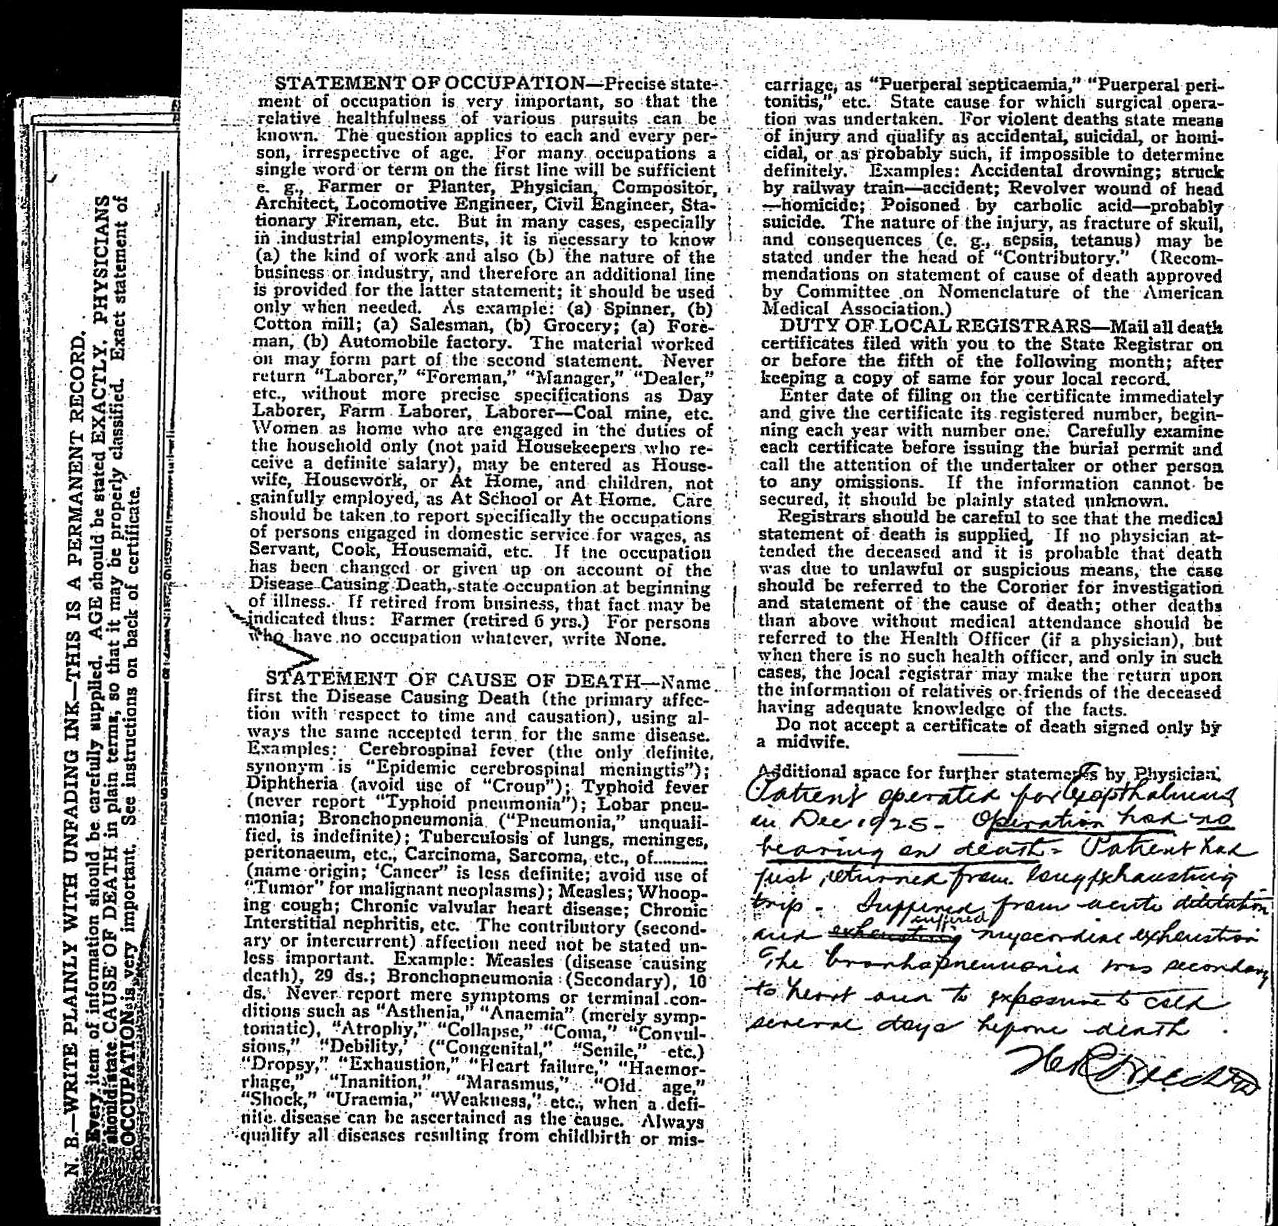 N. B.—WRITE PLAINLY WITH UNFADING INK—THIS IS A PERMANENT RECORD.
Every item of information should be carefully supplied. AGE should be stated EXACTLY. PHYSICIANS
should state CAUSE OF DEATH in plain terms, so that it may be properly classified. Exact statement of
OCCUPATION is very important. See instructions on back of certificate.
STATEMENT OF OCCUPATION—Precise state-
ment of occupation is very important, so that the
relative healthfulness of various pursuits can be
known. The question applies to each and every per-
son, irrespective of age. For many occupations a
single word or term on the first line will be sufficient
e. g., Farmer or Planter, Physician, Compositor,
Architect, Locomotive Engineer, Civil Engineer, Sta-
tionary Fireman, etc. But in many cases, especially
in industrial employments, it is necessary to know
(a) the kind of work and also (b) the nature of the
business or industry, and therefore an additional line
is provided for the latter statement; it should be used
only when needed. As example: (a) Spinner, (b)
Cotton mill; (a) Salesman, (b) Grocery; (a) Fore-
man, (b) Automobile factory. The material worked
on may form part of the second statement. Never
return "Laborer," "Foreman," "Manager," "Dealer,"
etc., without more precise specifications as Day
Laborer, Farm Laborer, Laborer—Coal mine, etc.
Women as home who are engaged in the duties of
the household only (not paid Housekeepers who re-
ceive a definite salary), may be entered as House-
wife, Housework, or At Home, and children, not
gainfully employed, as At School or At Home. Care
should be taken to report specifically the occupations
of persons engaged in domestic service for wages, as
Servant, Cook, Housemaid, etc. If the occupation
has been changed or given up on account of the
Disease Causing Death, state occupation at beginning
of illness. If retired from business, that fact may be
indicated thus: Farmer (retired 6 yrs.) For persons
who have no occupation whatever, write None.
STATEMENT OF CAUSE OF DEATH—Name
first the Disease Causing Death (the primary affec-
tion with respect to time and causation), using al-
ways the same accepted term for the same disease.
Examples: Cerebrospinal fever (the only definite,
synonym is "Epidemic cerebrospinal meningtis");
Diphtheria (avoid use of "Croup"); Typhoid fever
(never report "Typhoid pneumonia"); Lobar pneu-
monia; Bronchopneumonia ("Pneumonia," unquali-
fied, is indefinite); Tuberculosis of lungs, meninges,
peritonaeum, etc., Carcinoma, Sarcoma, etc., of..........
(name origin; 'Cancer" is less definite; avoid use of
"Tumor" for malignant neoplasms); Measles; Whoop-
ing cough; Chronic valvular heart disease; Chronic
Interstitial nephritis, etc. The contributory (second-
ary or intercurrent) affection need not be stated un-
less important. Example: Measles (disease causing
death), 29 ds.; Bronchopneumonia (Secondary), 10
ds. Never report mere symptoms or terminal con-
ditions such as "Asthenia," "Anaemia" (merely symp-
tomatic), "Atrophy," "Collapse," "Coma," "Convul-
sions," "Debility,' ("Congenital," "Senile," etc.)
"Dropsy," "Exhaustion," "Heart failure," "Haemor-
rhage," "Inanition," "Marasmus," "Old age,"
"Shock," "Uraemia," "Weakness," etc., when a defi-
nite disease can be ascertained as the cause. Always
qualify all diseases resulting from childbirth or mis-
carriage, as "Puerperal septicaemia," "Puerperal peri-
tonitis," etc. State cause for which surgical opera-
tion was undertaken. For violent deaths state means
of injury and qualify as accidental, suicidal, or homi-
cidal, or as probably such, if impossible to determine
definitely. Examples: Accidental drowning; struck
by railway train—accident; Revolver wound of head
—homicide; Poisoned by carbolic acid—probably
suicide. The nature of the injury, as fracture of skull,
and consequences (e. g., sepsis, tetanus) may be
stated under the head of "Contributory." (Recom-
mendations on statement of cause of death approved
by Committee on Nomenclature of the American
Medical Association.)
DUTY OF LOCAL REGISTRARS—Mail all death
certificates filed with you to the State Registrar on
or before the fifth of the following month; after
keeping a copy of same for your local record.
Enter date of filing on the certificate immediately
and give the certificate its registered number, begin-
ning each year with number one. Carefully examine
each certificate before issuing the burial permit and
call the attention of the undertaker or other person
to any omissions. If the information cannot be
secured, it should be plainly stated unknown.
Registrars should be careful to see that the medical
statement of death is supplied. If no physician at-
tended the deceased and it is probable that death
was due to unlawful or suspicious means, the case
should be referred to the Coroner for investigation
and statement of the cause of death; other deaths
than above without medical attendance should be
referred to the Health Officer (if a physician), but
when there is no such health officer, and only in such
cases, the local registrar may make the return upon
the information of relatives or friends of the deceased
having adequate knowledge of the facts.
Do not accept a certificate of death signed only by
a midwife.
Additional space for further statements by Physician.
Patient operated for Exopthalmus
in Dec 1925 - Operation had no
bearing on death - Patient had
just returned from long exhausting
trip - Suffered from acute dilitation
and myocardial exhaustion
The bronchopneumonia was secondary
to heart and to exposure to cold
several days before death.